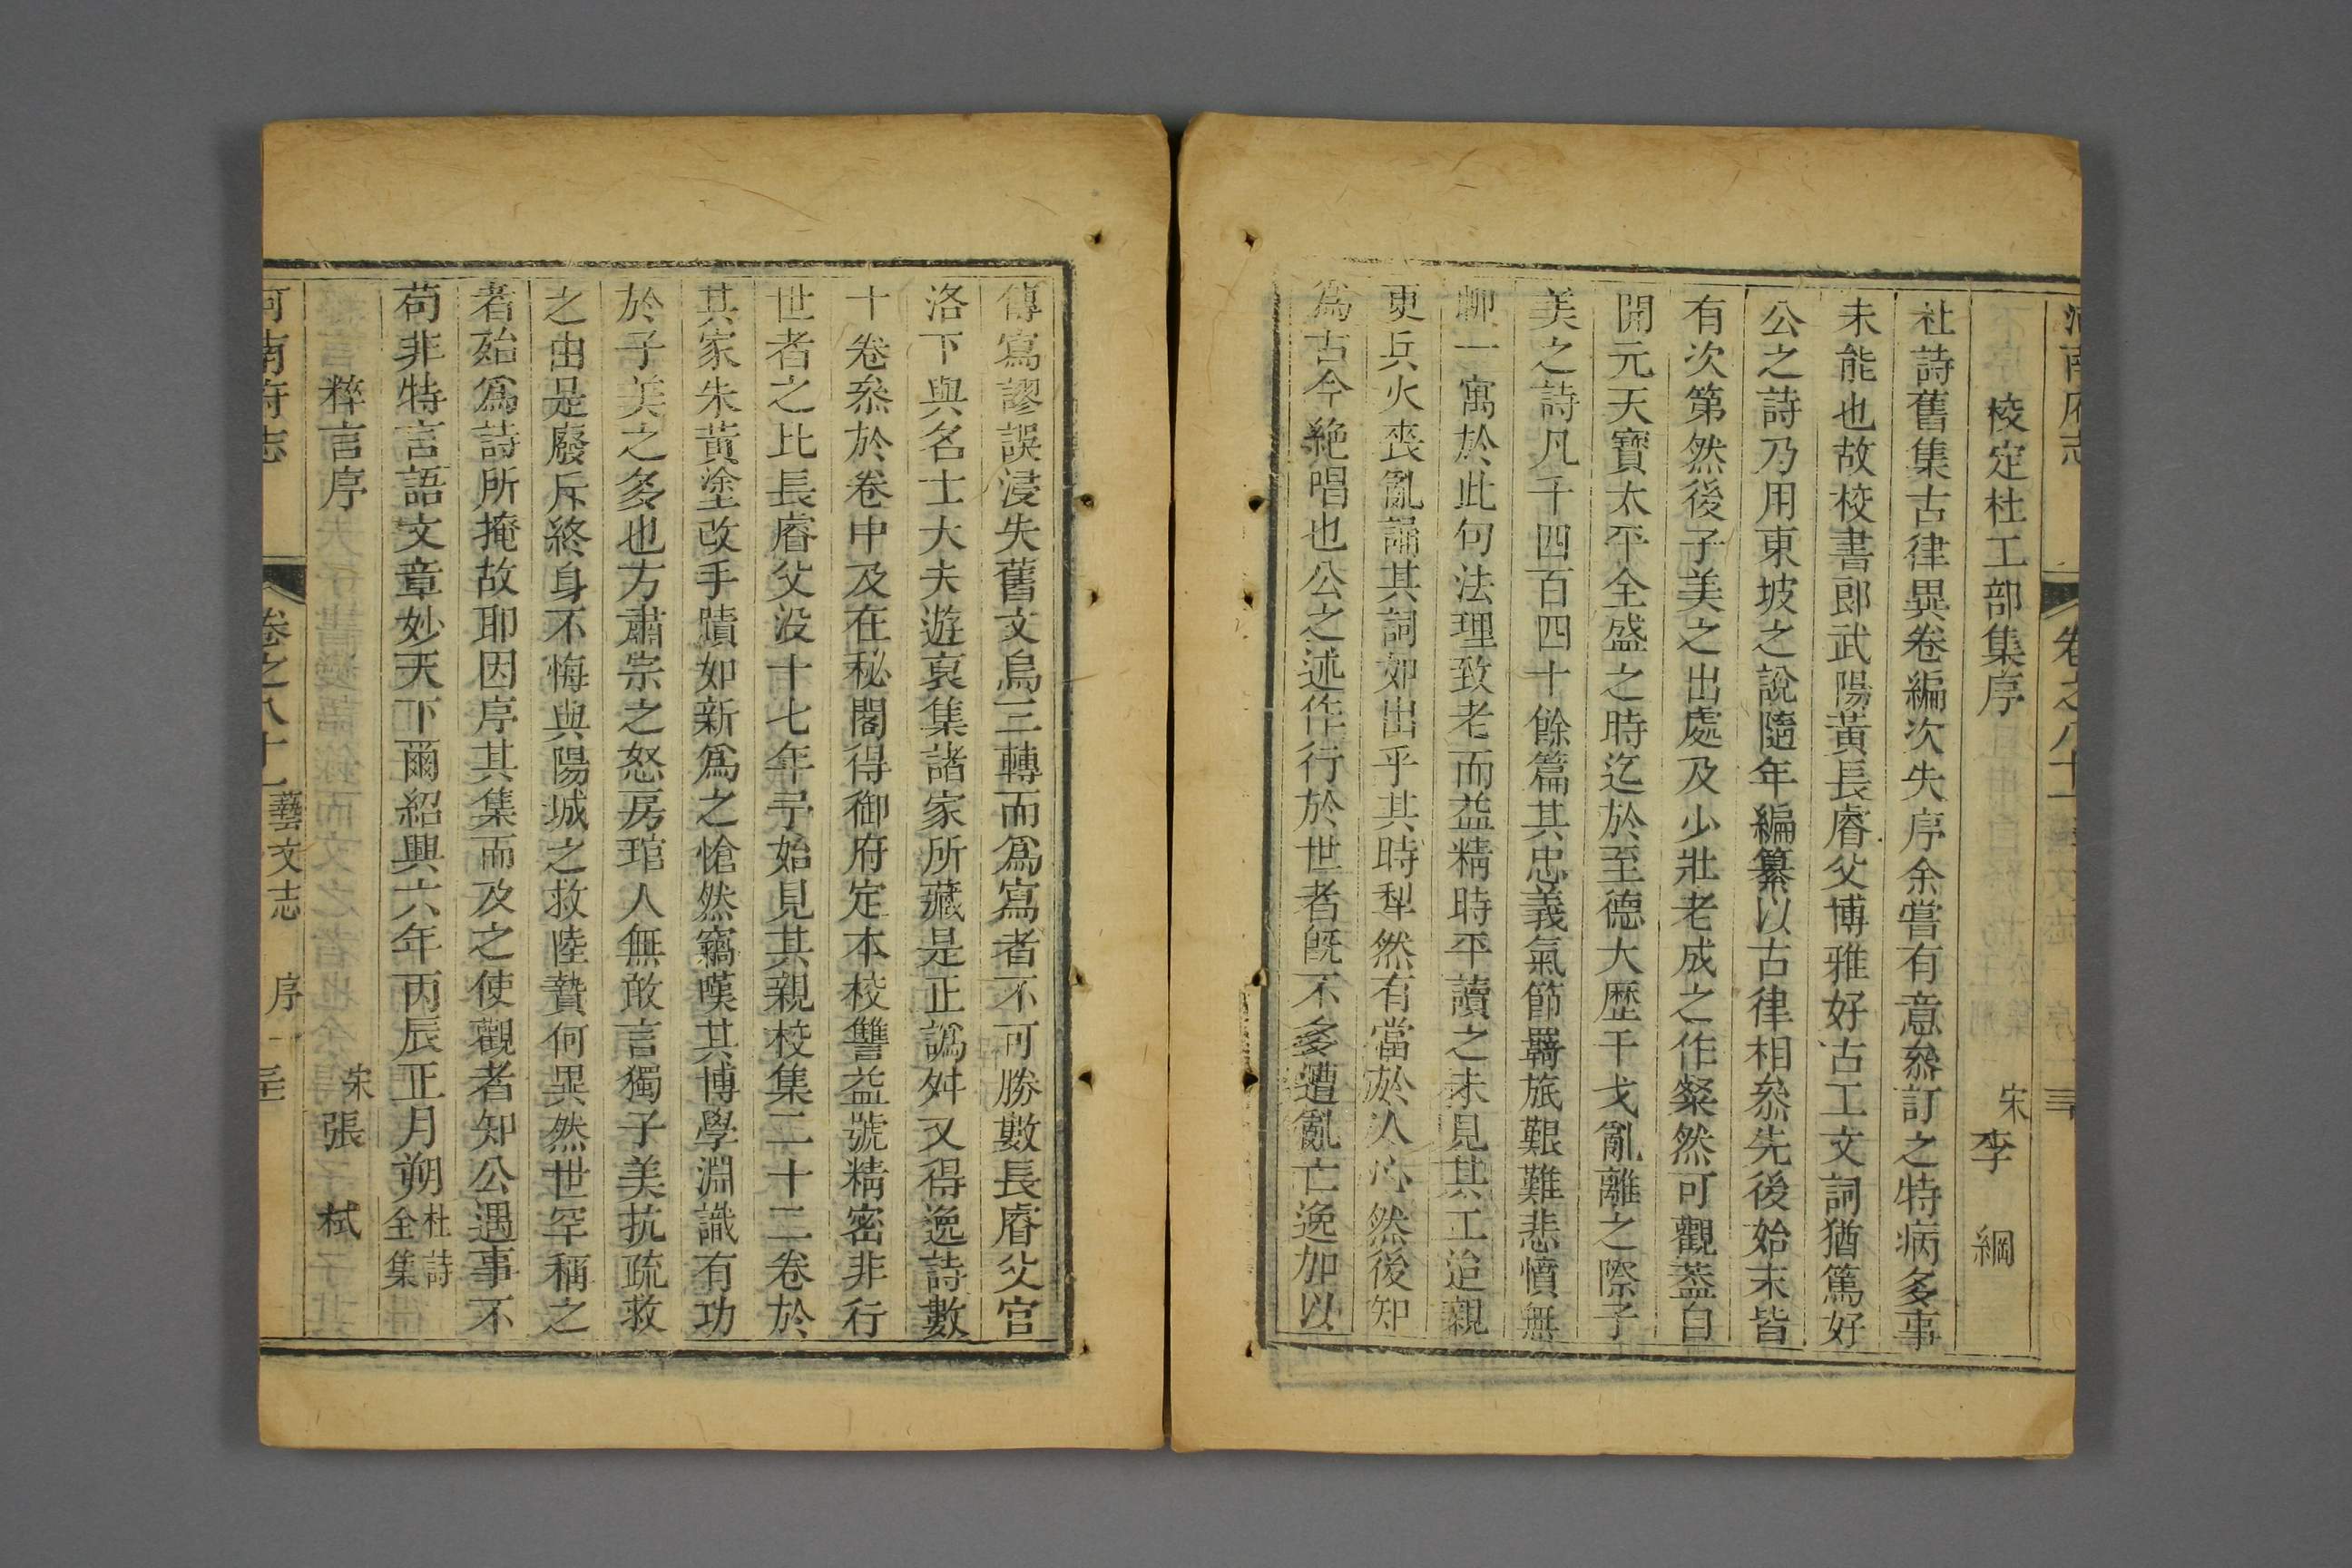 河南府志 卷之八十一 藝文志 序
校定杜工部集序 宋李 綱
社詩舊集古律異卷編次失序余嘗有意叅訂之特病多事
未能也故校書郎武陽黃長睿父博雅好古工文詞猶篤好
公之詩乃用東坡之說隨年編纂以古律相叅先後始末皆
有次第然後子美之出處及少壯老成之作粲然可觀葢自
開元天寶太平全盛之時迄於至德大歷干戈亂離之際子
美之詩凡千四百四十餘篇其忠義氣節羇旅艱難悲憤無
聊一寓於此句法理致老而益精時平讀之未見其工追親
更兵火喪亂誦其詞如出乎其時犁然有當於人心然後知
爲古今絶唱也公之述作行於世者旣不多遭亂亡逸加以
傳寫謬誤浸失舊文烏三轉而爲寫者不可勝數長睿父官
洛下與名士大夫遊裒集諸家所藏是正譌舛又得逸詩數
十卷叅於卷中及在秘閣得御府定本校讐益號精密非行
世者之比長睿父沒十七年予始見其親校集二十二卷於
其家朱黃塗改手蹟如新爲之愴然竊嘆其博學淵識有功
於子美之多也方肅宗之怒房琯人無敢言獨子美抗疏救
之由是廢斥終身不悔與陽城之救陸贄何異然世罕稱之
者殆爲詩所掩故耶因序其集而及之使觀者知公遇事不
苟非特言語文章妙天下爾紹興六年丙辰正月朔 杜詩全集
粹言序 宋張 栻
河南府志 卷之八十一 藝文志 序